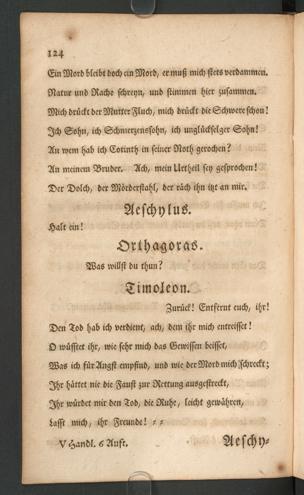 124
Ein Mord bleibt doch ein Mord, er muß mich stets verdammen.
Natur und Rache schreyn, und stimmen hier zusammen.
Mich drückt der Mutter Fluch, mich drückt die Schwere schon!
Ich Sohn, ich Schmerzenssohn, ich unglückselger Sohn!
An wem hab ich Corinth in seiner Noth gerochen?
An meinem Bruder. Ach, mein Urtheil sey gesprochen!
Der Dolch, der Mörderstahl, der räch ihn itzt an mir.
Aeschylus.
Halt ein!
Orthagoras.
Was willst du thun?
Timoleon.
Zurück! Entfernt euch, ihr!
Den Tod hab ich verdient, ach, dem ihr mich entreisset!
O wüßtet ihr, wie sehr mich das Gewissen beisset,
Was ich für Angst empfind, und wie der Mord mich schreckt;
Ihr hättet nie die Faust zur Rettung ausgestreckt,
Ihr würdet mir den Tod, die Ruhe, leicht gewähren,
Lasst mich, ihr Freunde! - -
V Handl. 6 Auft.
Aeschy-